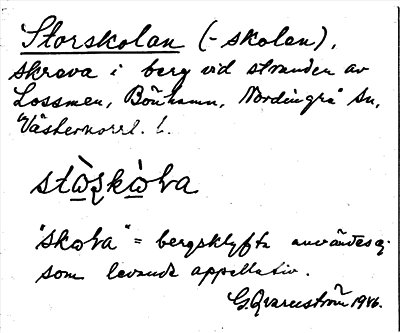 Storskolan (-skolan),
skreva i berg vid stranden av
Lossmen, Bönhamn, Nordingrå sn,
Västernorrl. l.
stὼʂkὼɫa
"skωɫa" = bergsklyfta användes ej
som levande appellativ.
G. Qvarnström 1946.